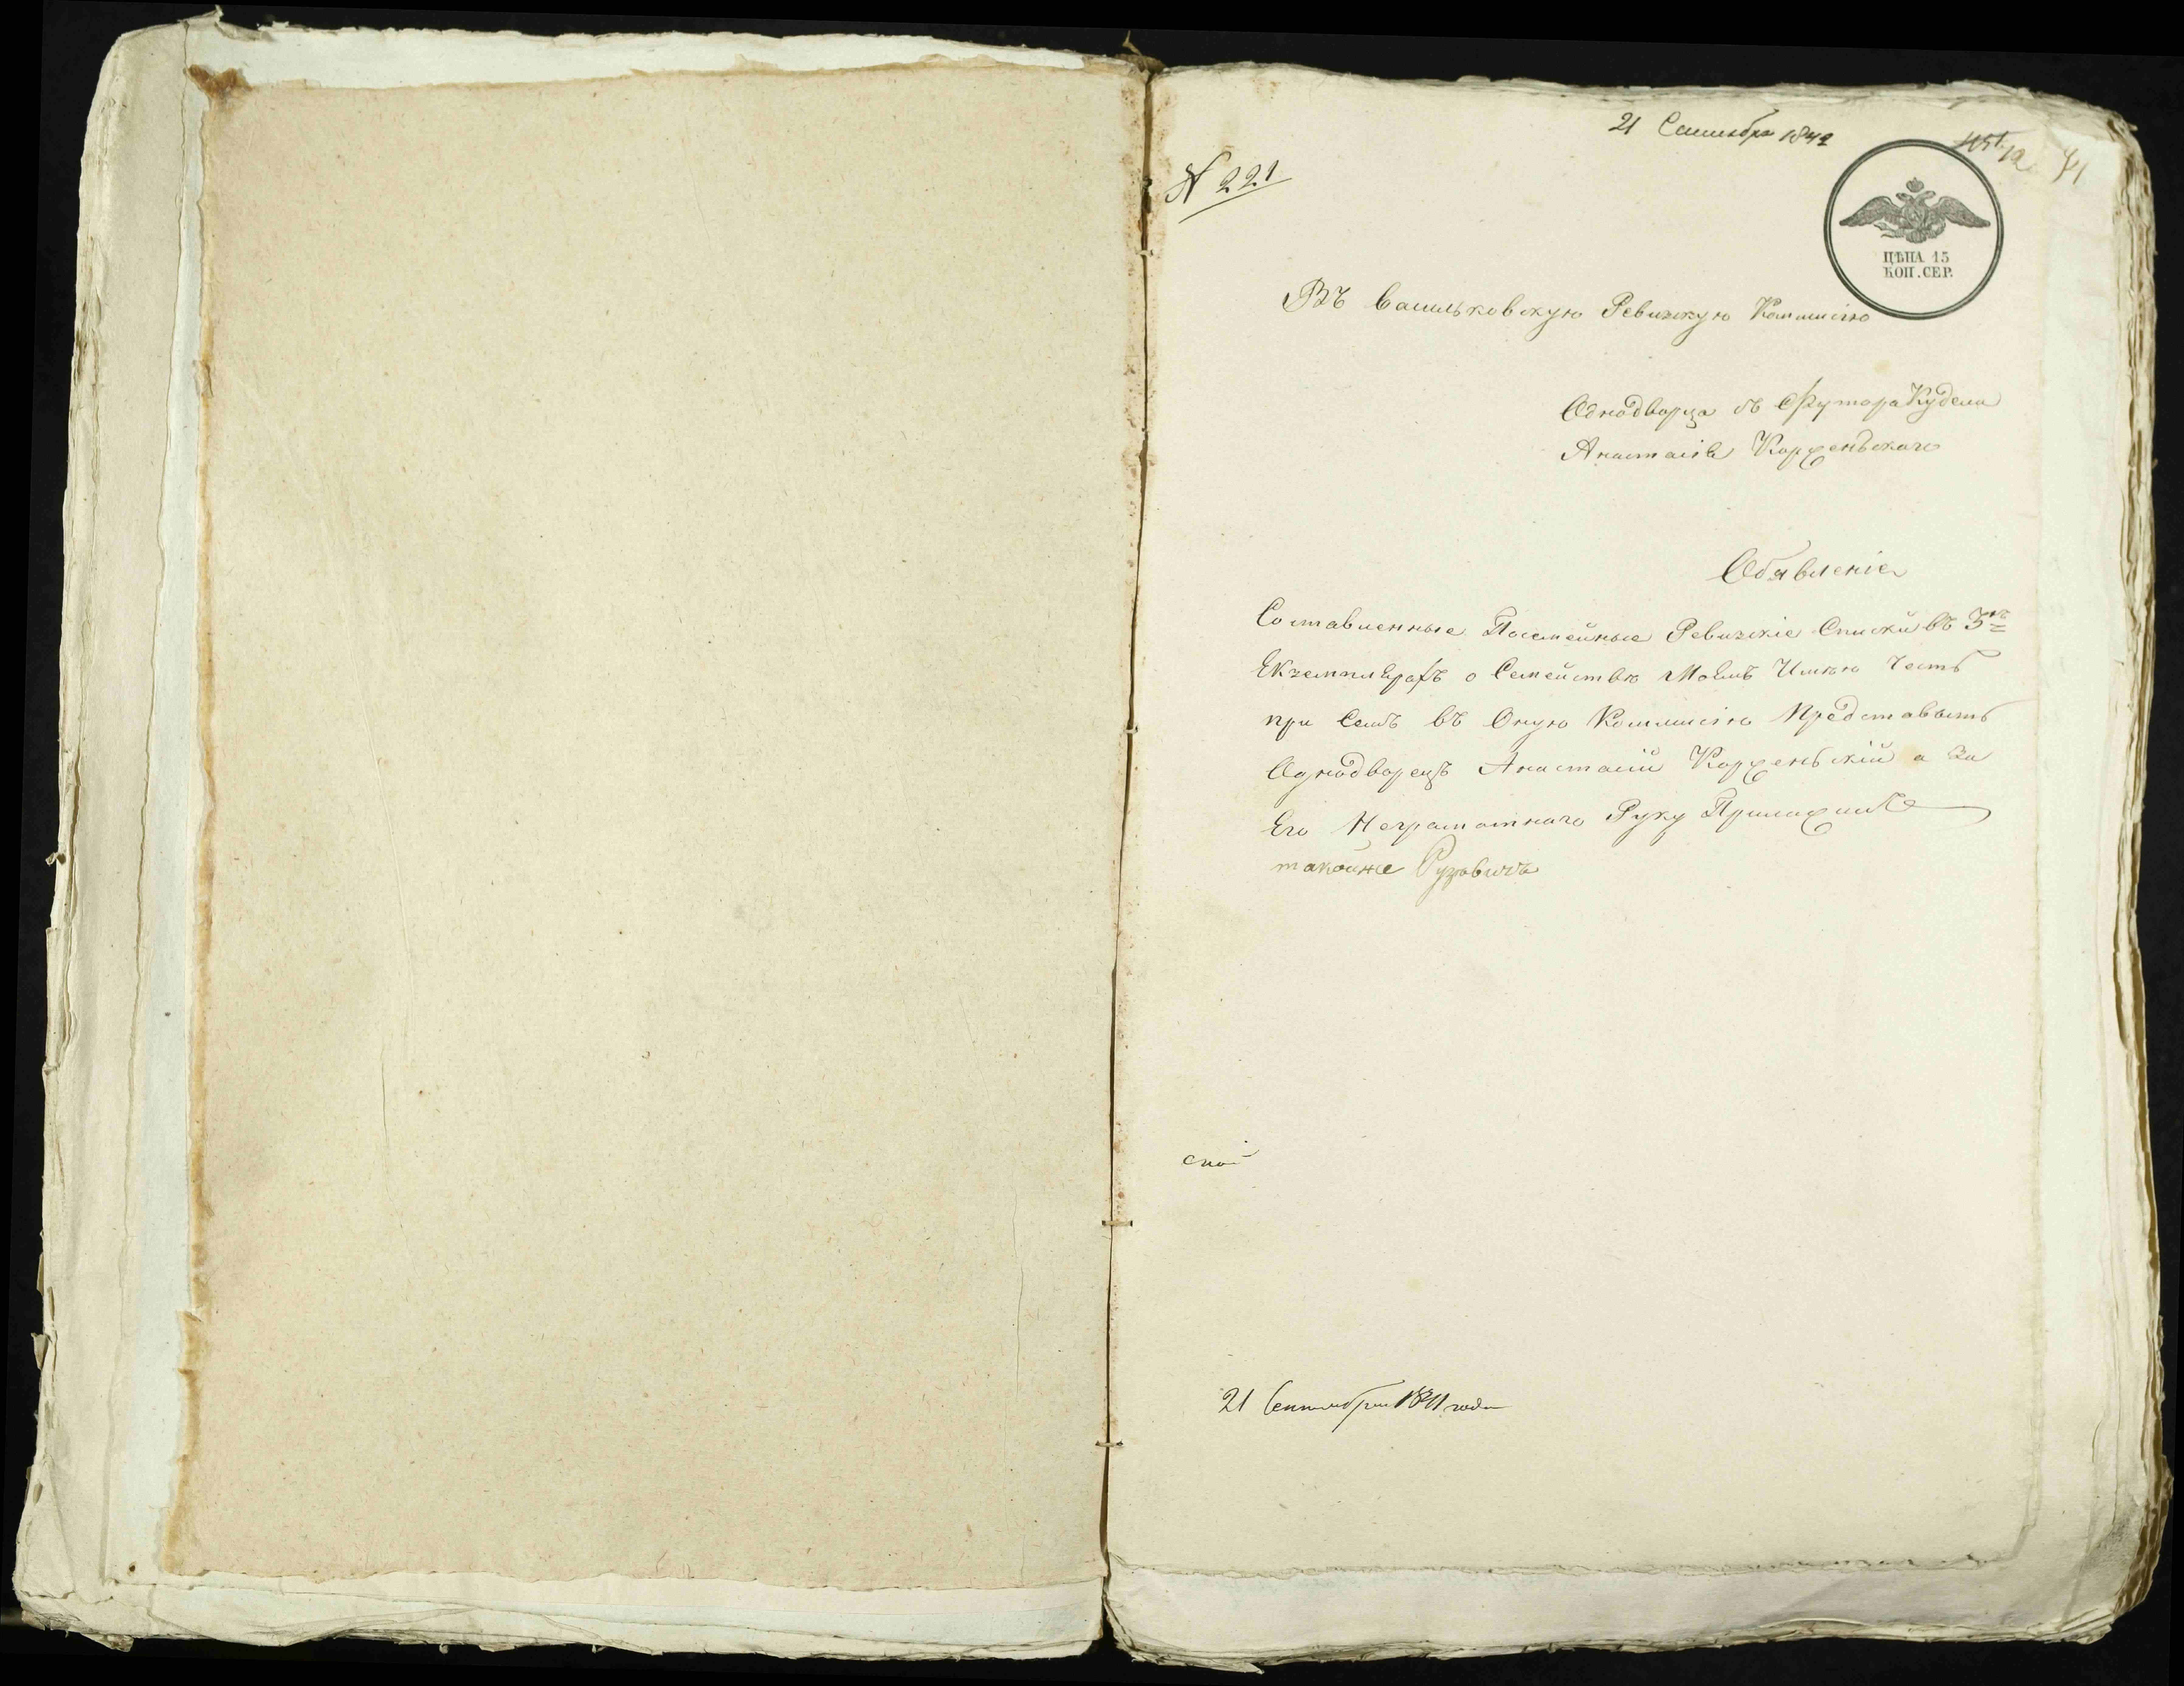 21 Сентября 1842
№ 221
ЦѢНА 15
КОП. СЕР.
Въ Васильковскую Ревизкую Коммисію
Однодворца съ Футора Кудели
Анастасія Корженьскаго
Обявленіе
Составленные Посемейные Ревизкіе Списки въ 3хъ
Екземплерахъ о Семействѣ Моемъ Имѣю Честь
при Семъ въ Оную Коммисію Представить
Однодворецъ Анастасій Корженьскій а За
Его Неграмотнаго Руку Приложилъ
такойже
21 Сентября года